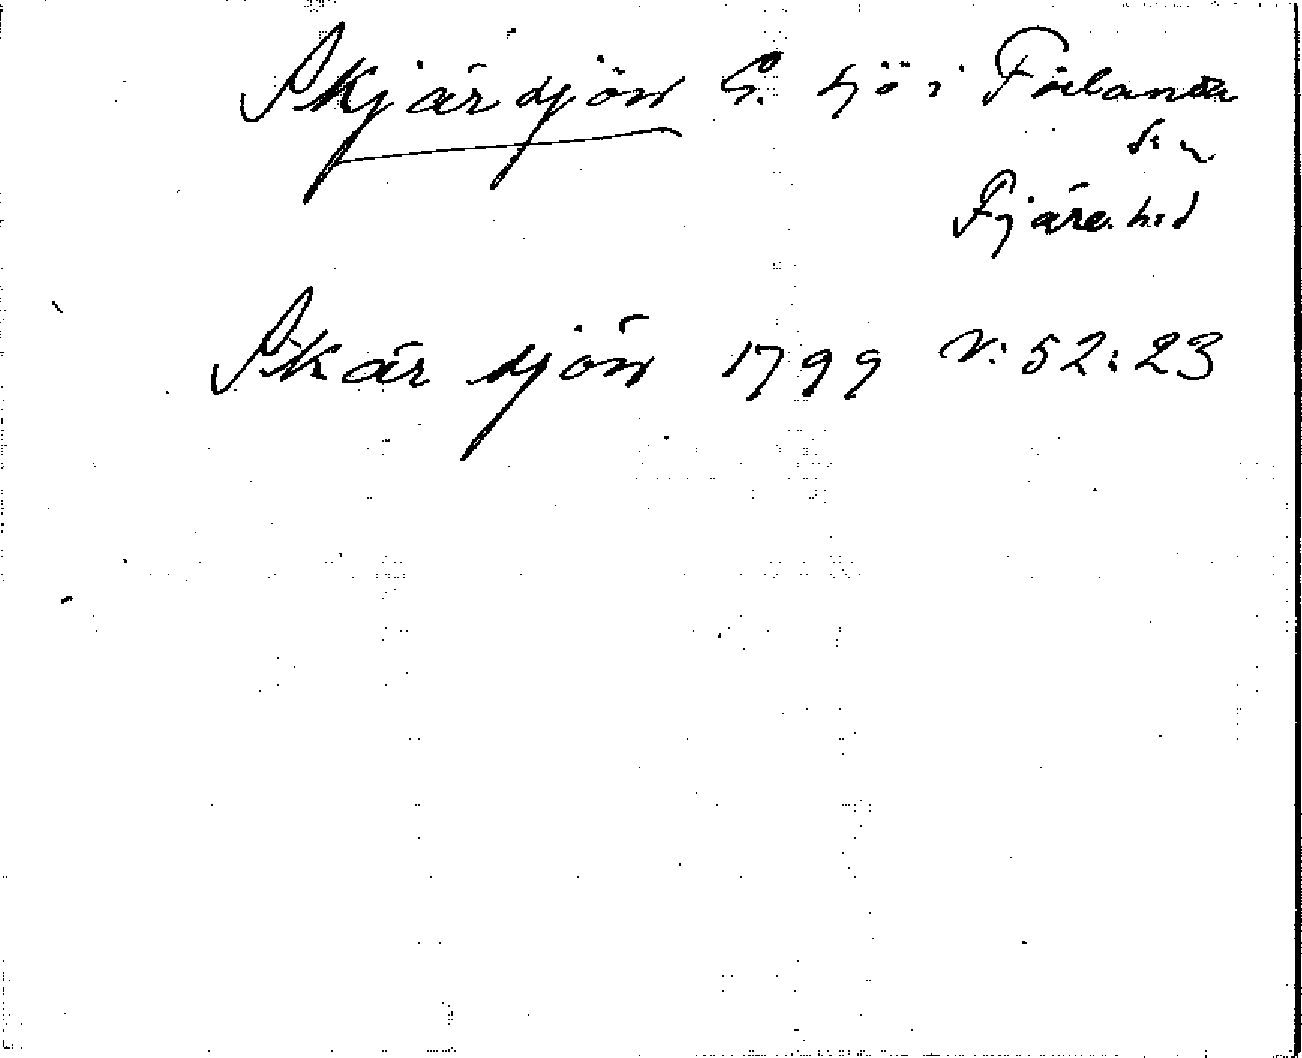 Skjärsjön G. sjö i Förlanda
sn
Fjäre hd
Skärsjön 1799 N: 52: 23